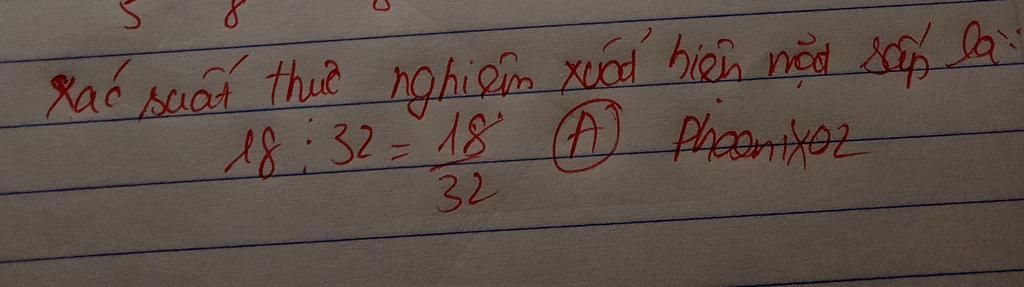 5 8 8
Xác suất thực nghiệm xuất hiện mặt sấp là:
18 : 32 = 18/32 (A) Phoenix02